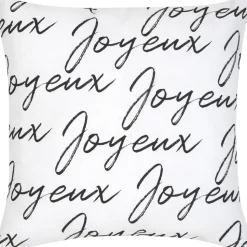 Joyeux
Joyeux Joyeux
Joyeux Joyeux
Joyeux Joyeux
Joyeux Joyeux
Joyeux